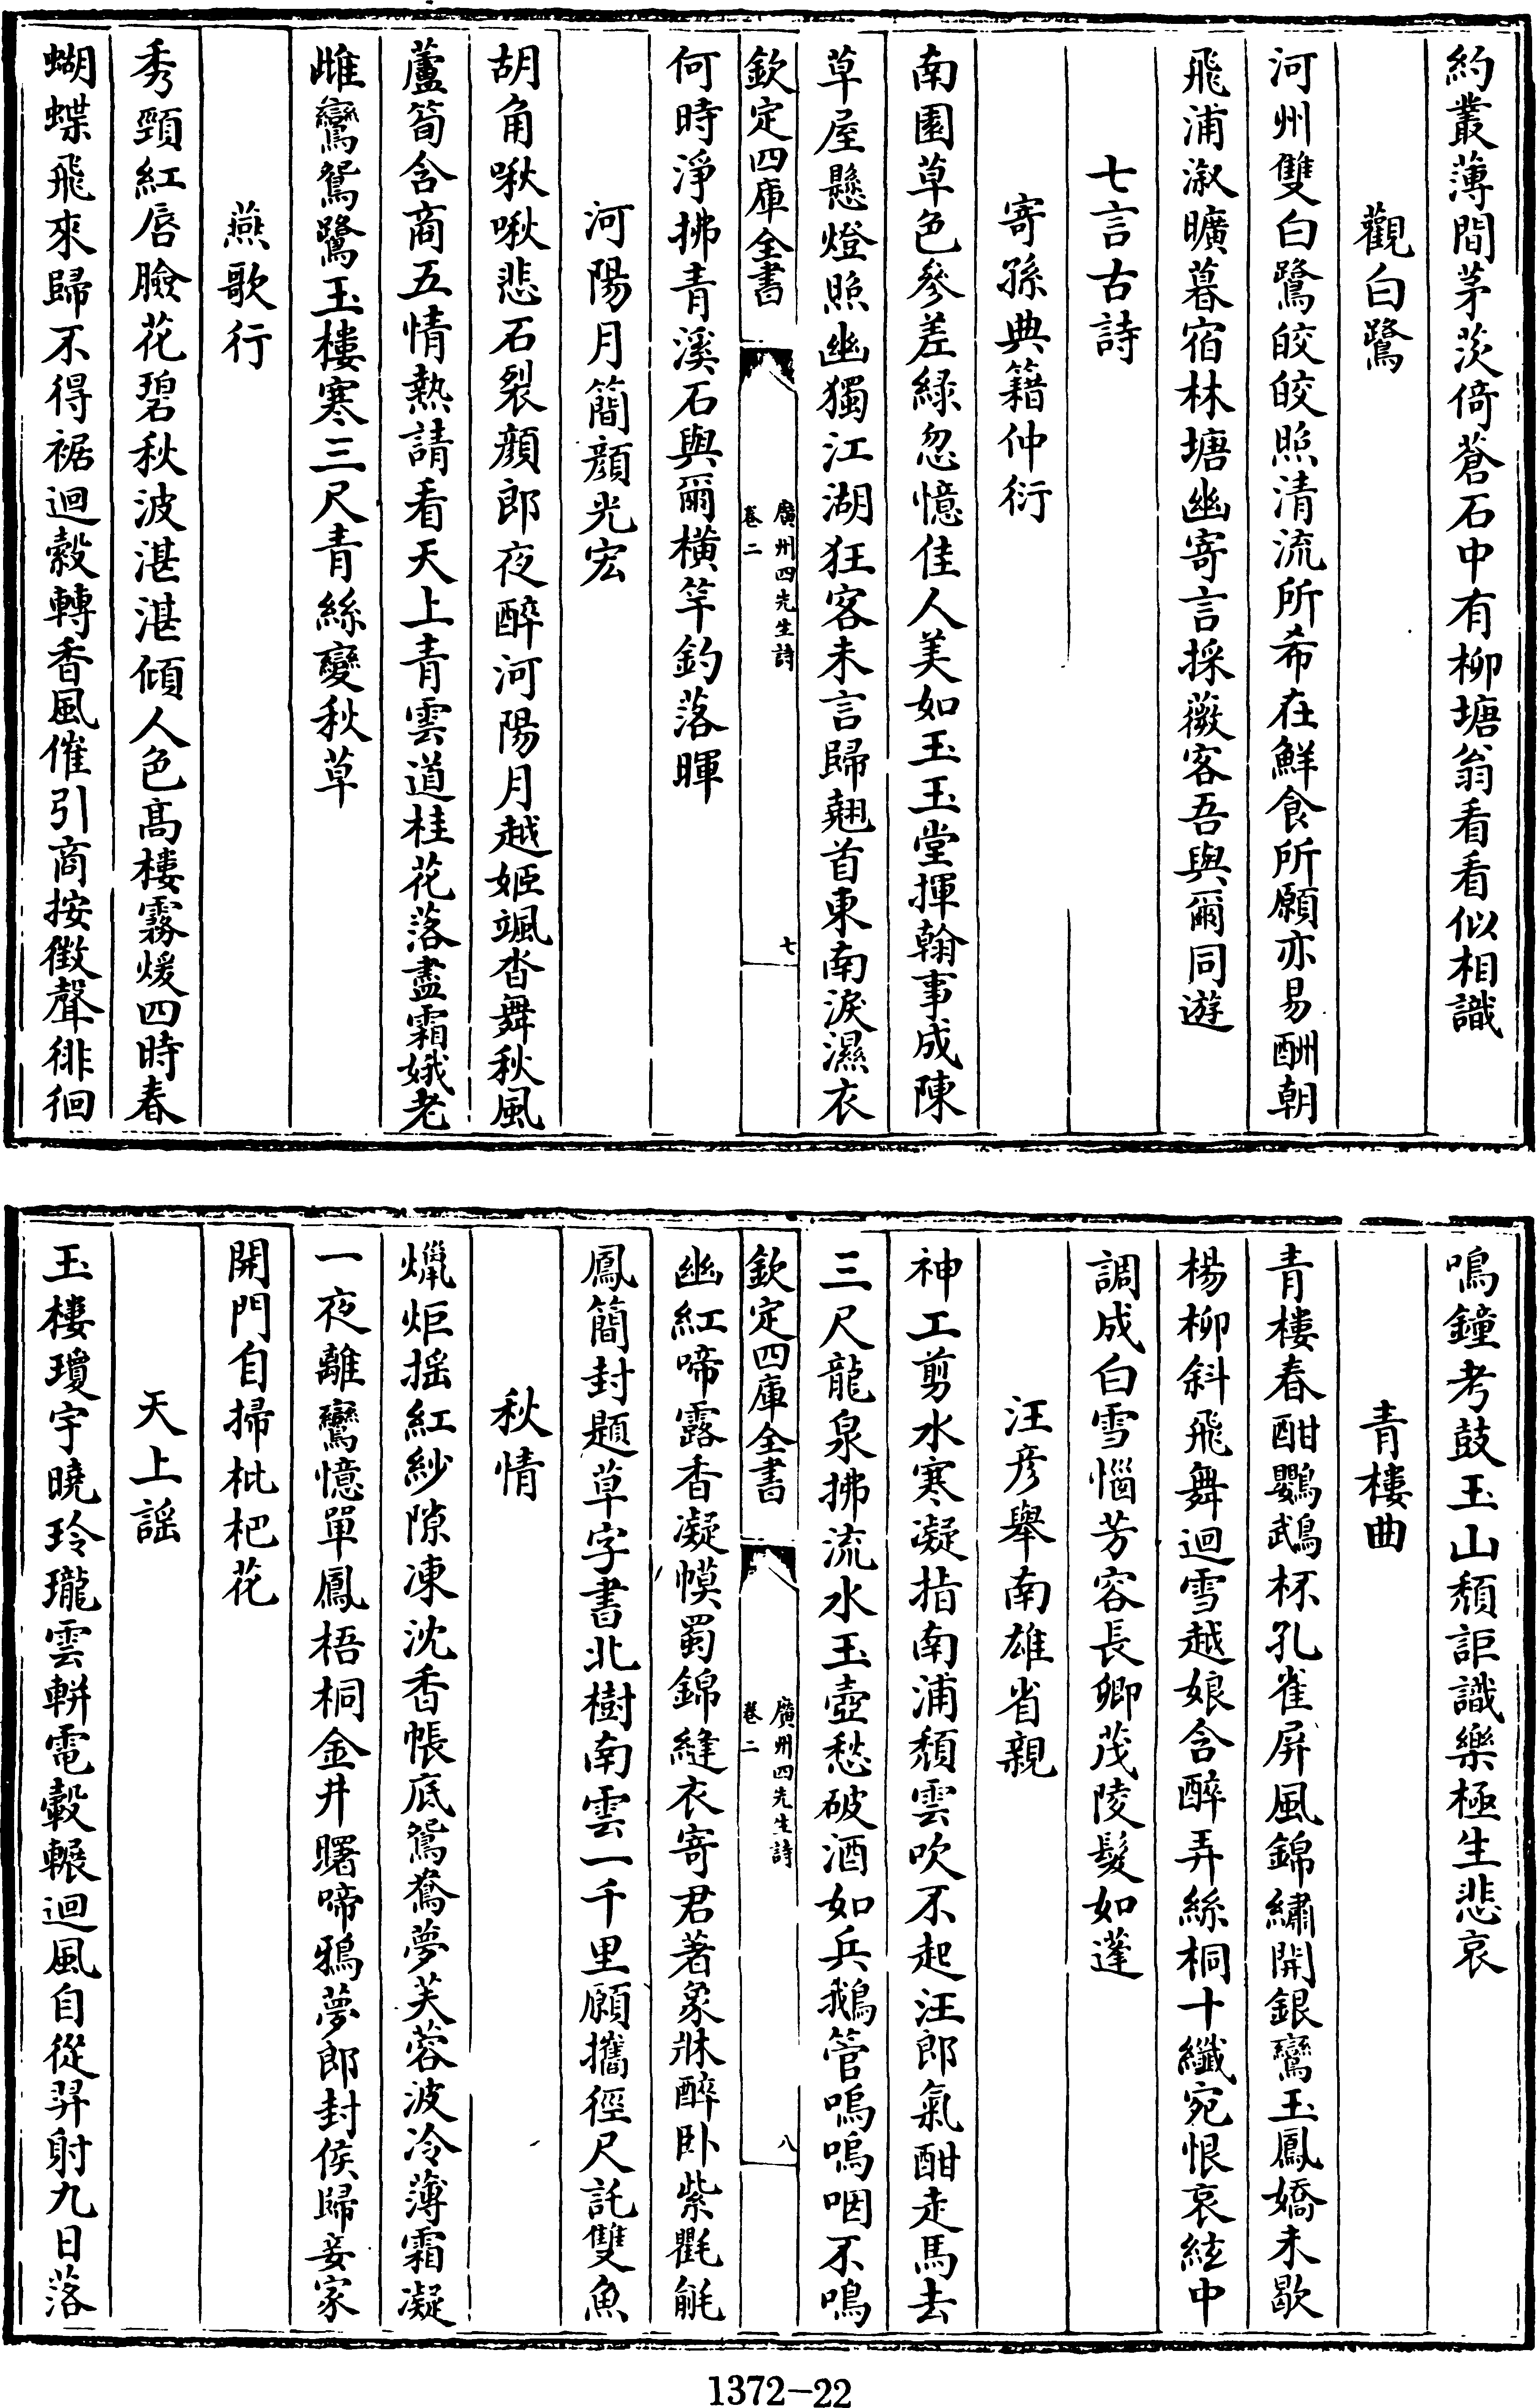 約叢薄間茅茨倚蒼石中有柳塘翁看看似相識
觀白鷺
河州雙白鷺皎皎照清流所希在鮮食所願亦易酬朝
飛浦溆曠暮宿林塘幽寄言採薇客吾與爾同遊
七言古詩
寄孫典籍仲衍
南園草色參差綠忽憶佳人美如玉玉堂揮翰事成陳
草屋懸燈照幽獨江湖狂客未言歸翹首東南淚濕衣
欽定四庫全書
廣州四先生詩
卷二
七
何時淨拂青溪石與爾橫竿釣落暉
河陽月簡顏光宏
胡角啾啾悲石裂顏郎夜醉河陽月越姬颯沓舞秋風
蘆筍含商五情熱請看天上青雲道桂花落盡霜娥老
雌鸞鴛鷺玉樓寒三尺青絲變秋草
燕歌行
秀頸紅唇臉花碧秋波湛湛傾人色高樓霧煖四時春
蝴蝶飛來歸不得裾迴縠轉香風催引商按徵聲徘徊
鳴鐘考鼓玉山頹詎識樂極生悲哀
青樓曲
青樓春酣鸚鵡杯孔雀屏風錦繡開銀鸞玉鳳嬌未歇
楊柳斜飛舞迴雪越娘含醉弄絲桐十纖宛恨哀絃中
調成白雪惱芳容長卿茂陵髮如蓬
汪彥舉南雄省親
神工剪水寒凝指南浦頹雲吹不起汪郎氣酣走馬去
三尺龍泉拂流水玉壺愁破酒如兵鵝管嗚嗚咽不鳴
欽定四庫全書
廣州四先生詩
卷二
八
幽紅啼露香凝幙蜀錦縫衣寄君著象牀醉臥紫氍毹
鳳簡封題草字書北樹南雲一千里願攜徑尺託雙魚
秋情
爉炬摇紅紗隙凍沈香帳底鴛鴦夢芙蓉波冷薄霜凝
一夜離鸞憶單鳳梧桐金井曙啼鴉夢郎封侯歸妾家
開門自掃枇杷花
天上謡
玉樓瓊宇曉玲瓏雲軿電轂輾迴風自從羿射九日落
1372-22